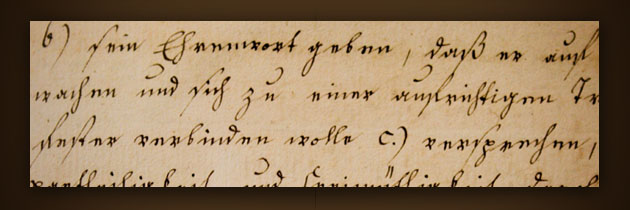 b) sein Ehrenwort geben, daß er auf
wachen und sich zu einer aufrichtigen Tr
verbinden wolle c.) versprechen,
und